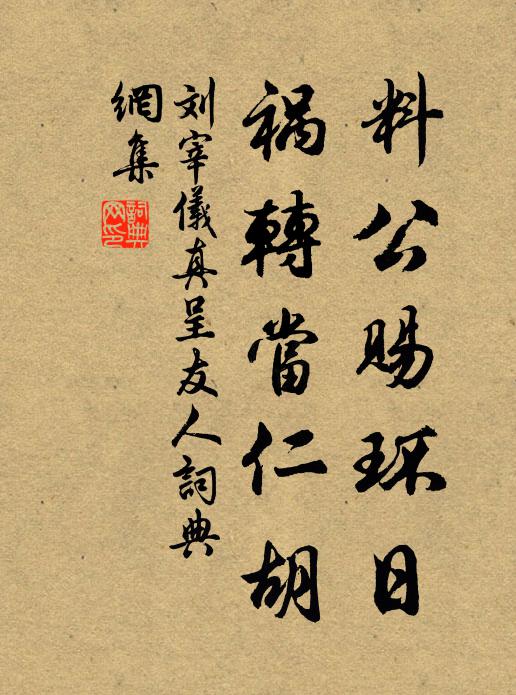 料公賜环日
禍轉當仁胡
刘宰儀真呈友人詞典
網集
詞典
网印